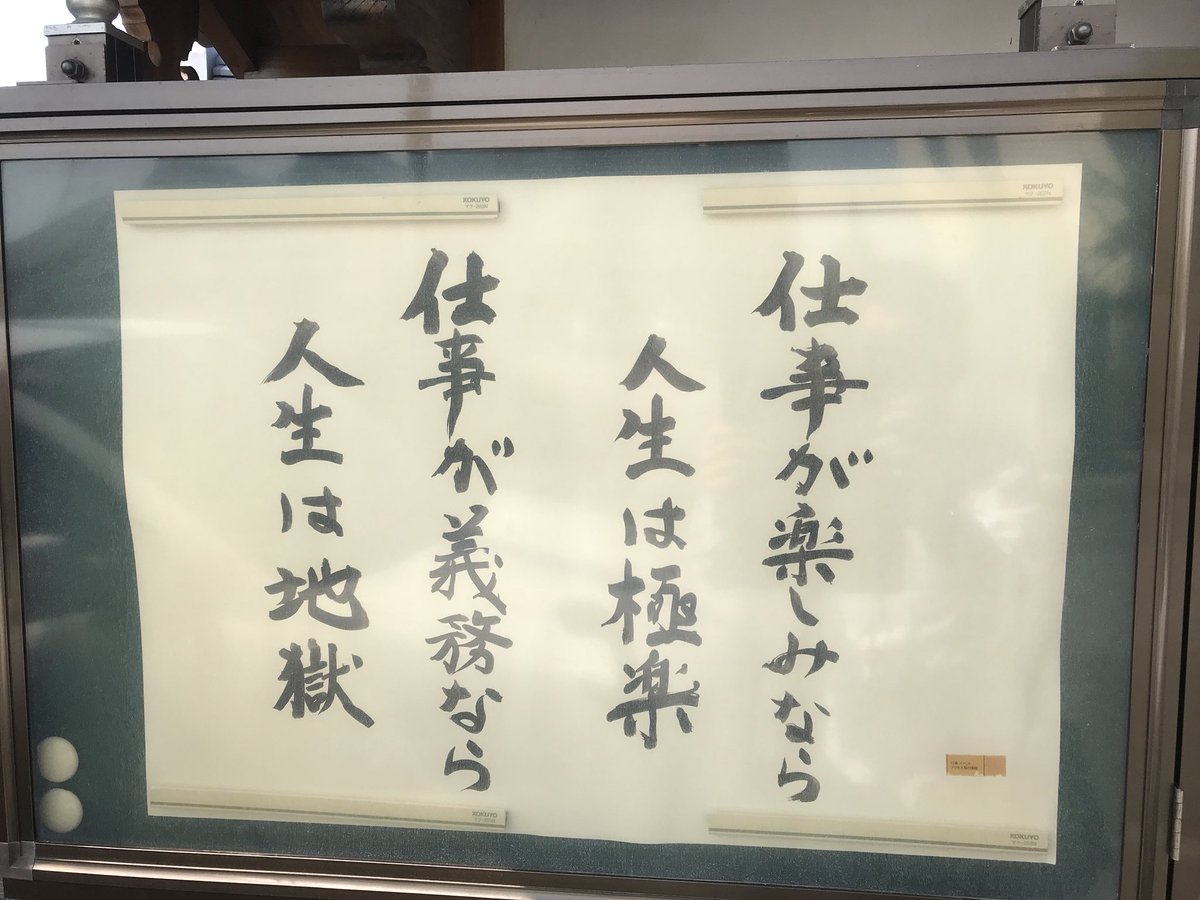 仕事が楽しみなら
人生は極楽
仕事が義務なら
人生は地獄
KOKUYO
KOKUYO
KOKUYO
KOKUYO